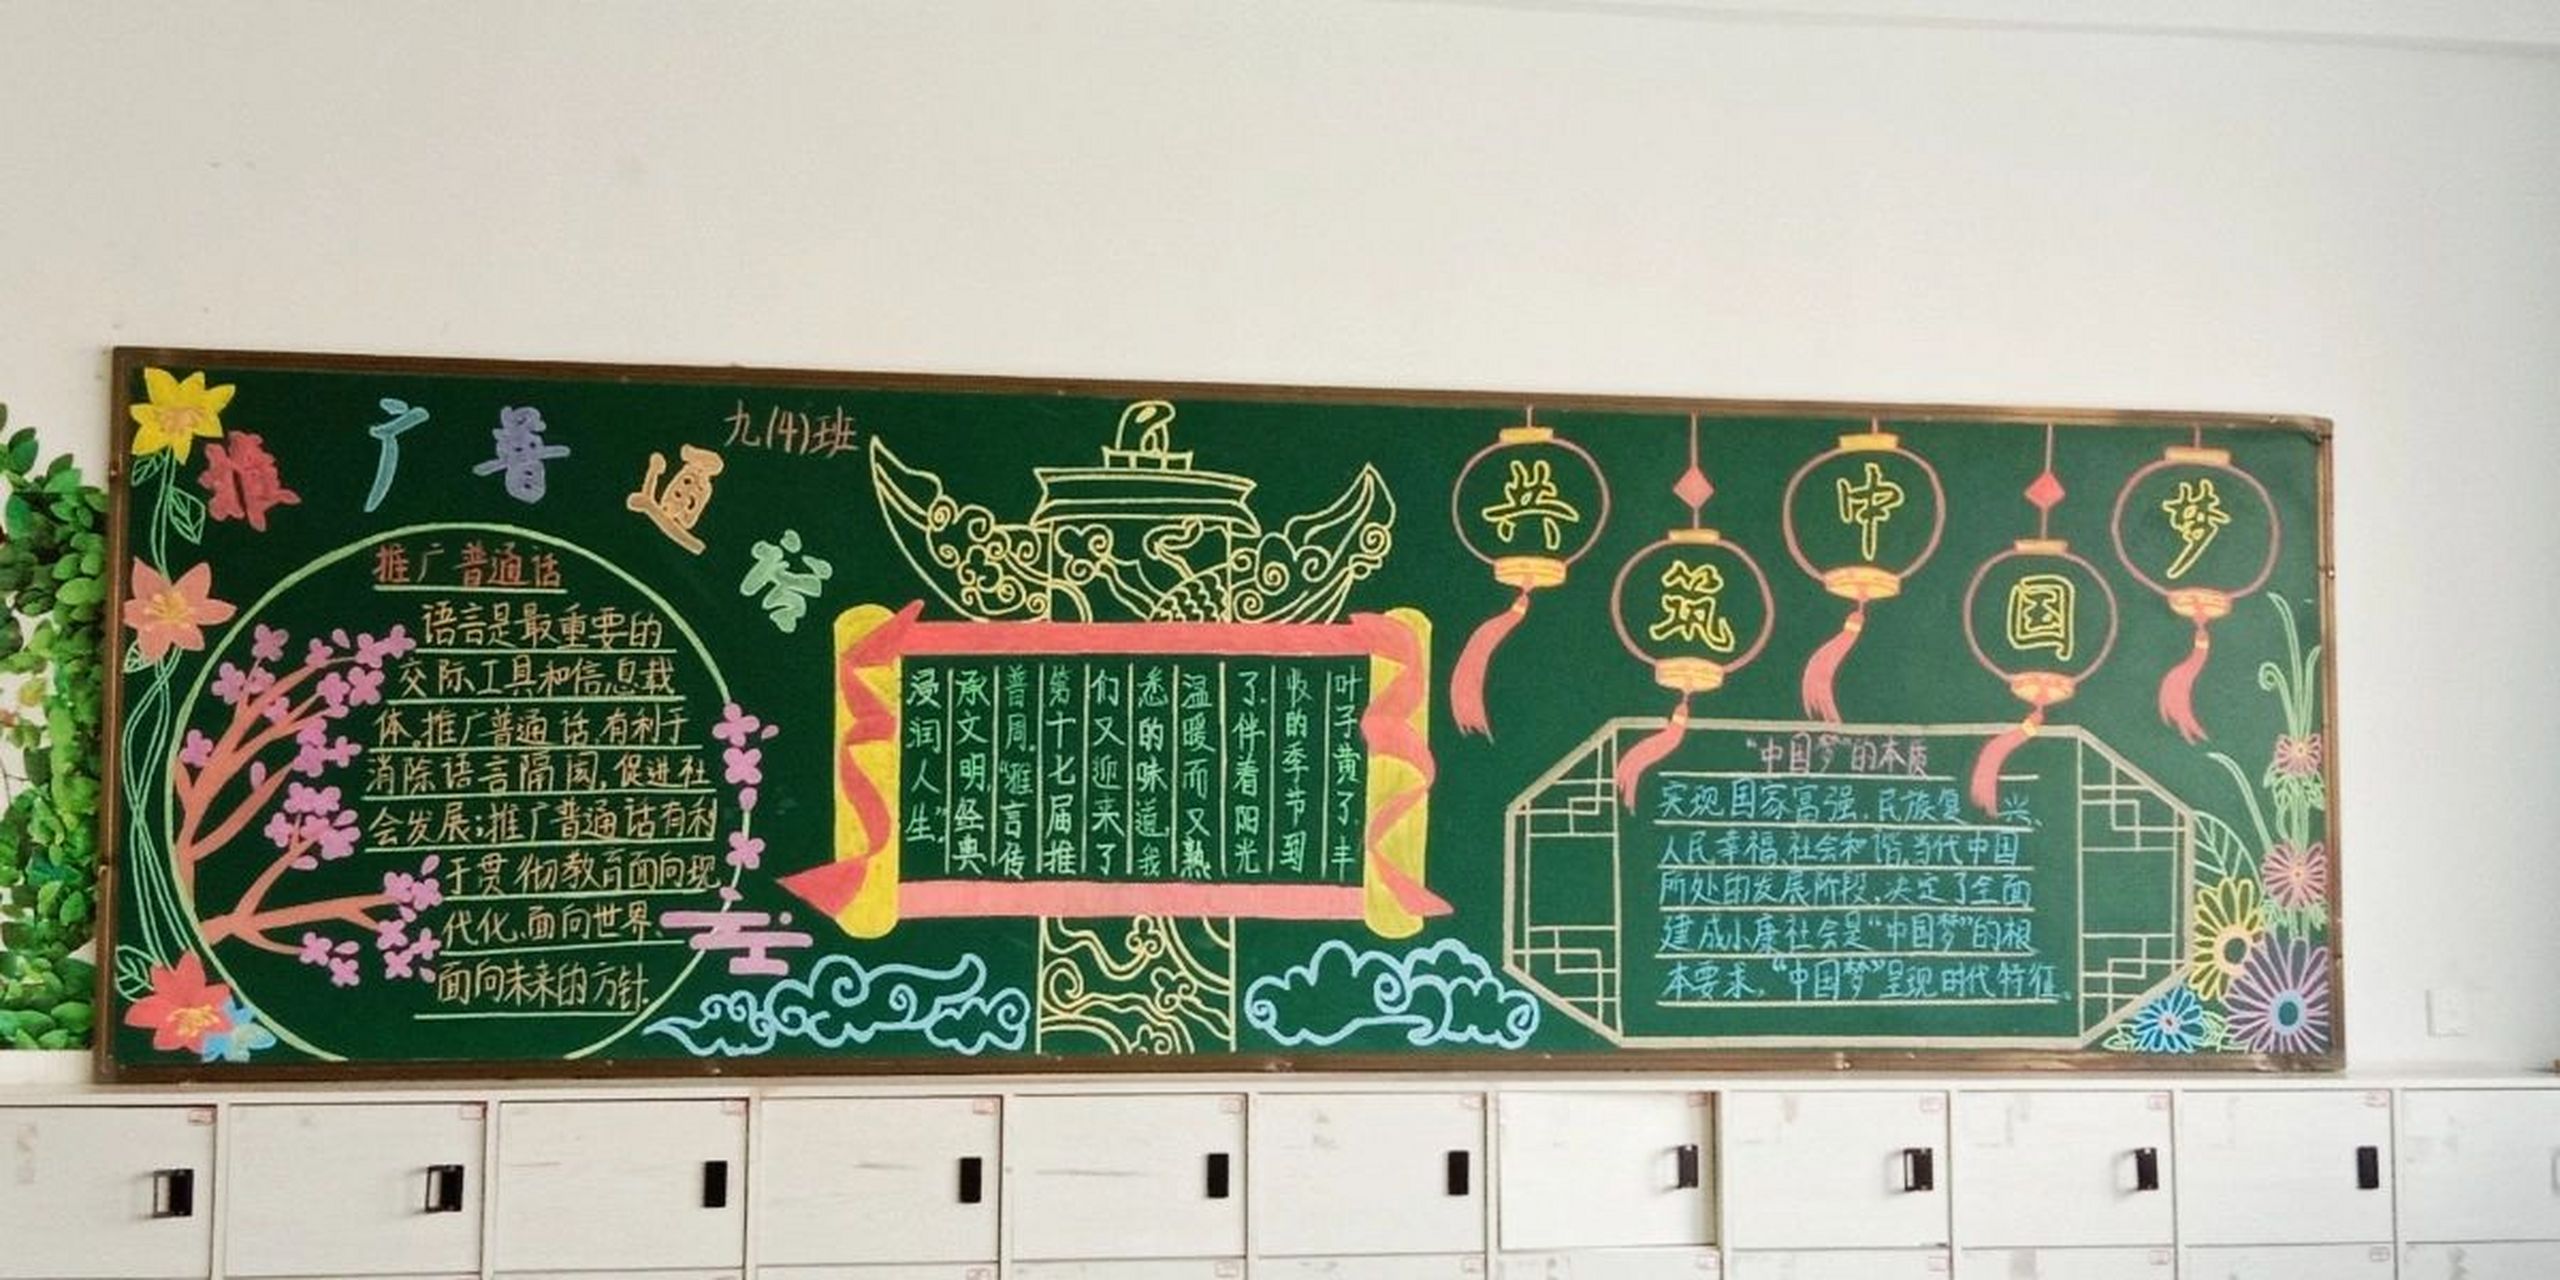 推广普通话
九(4)班
推广普通话
语言是最重要的
交际工具和信息载
体,推广普通话有利于
消除语言隔阂,促进社
会发展;推广普通话有利
于贯彻教育面向现
代化、面向世界、
面向未来的方针.
叶子黄了,丰
收的季节到
了,伴着阳光
温暖而又熟
悉的味道,我
们又迎来了
第十七届推
普周.“雅言传
承文明,经典
浸润人生”.
共筑中国梦
“中国梦”的本质
实现国家富强、民族复兴、
人民幸福、社会和谐,当代中国
所处的发展阶段,决定了全面
建成小康社会是“中国梦”的根
本要求,“中国梦”呈现时代特征.